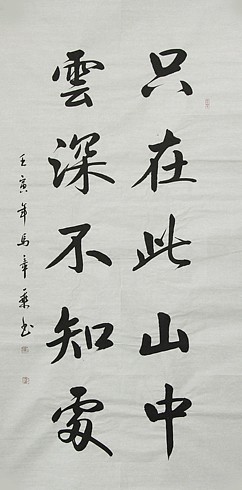 只在此山中
雲深不知處
壬寅年馬章乘书